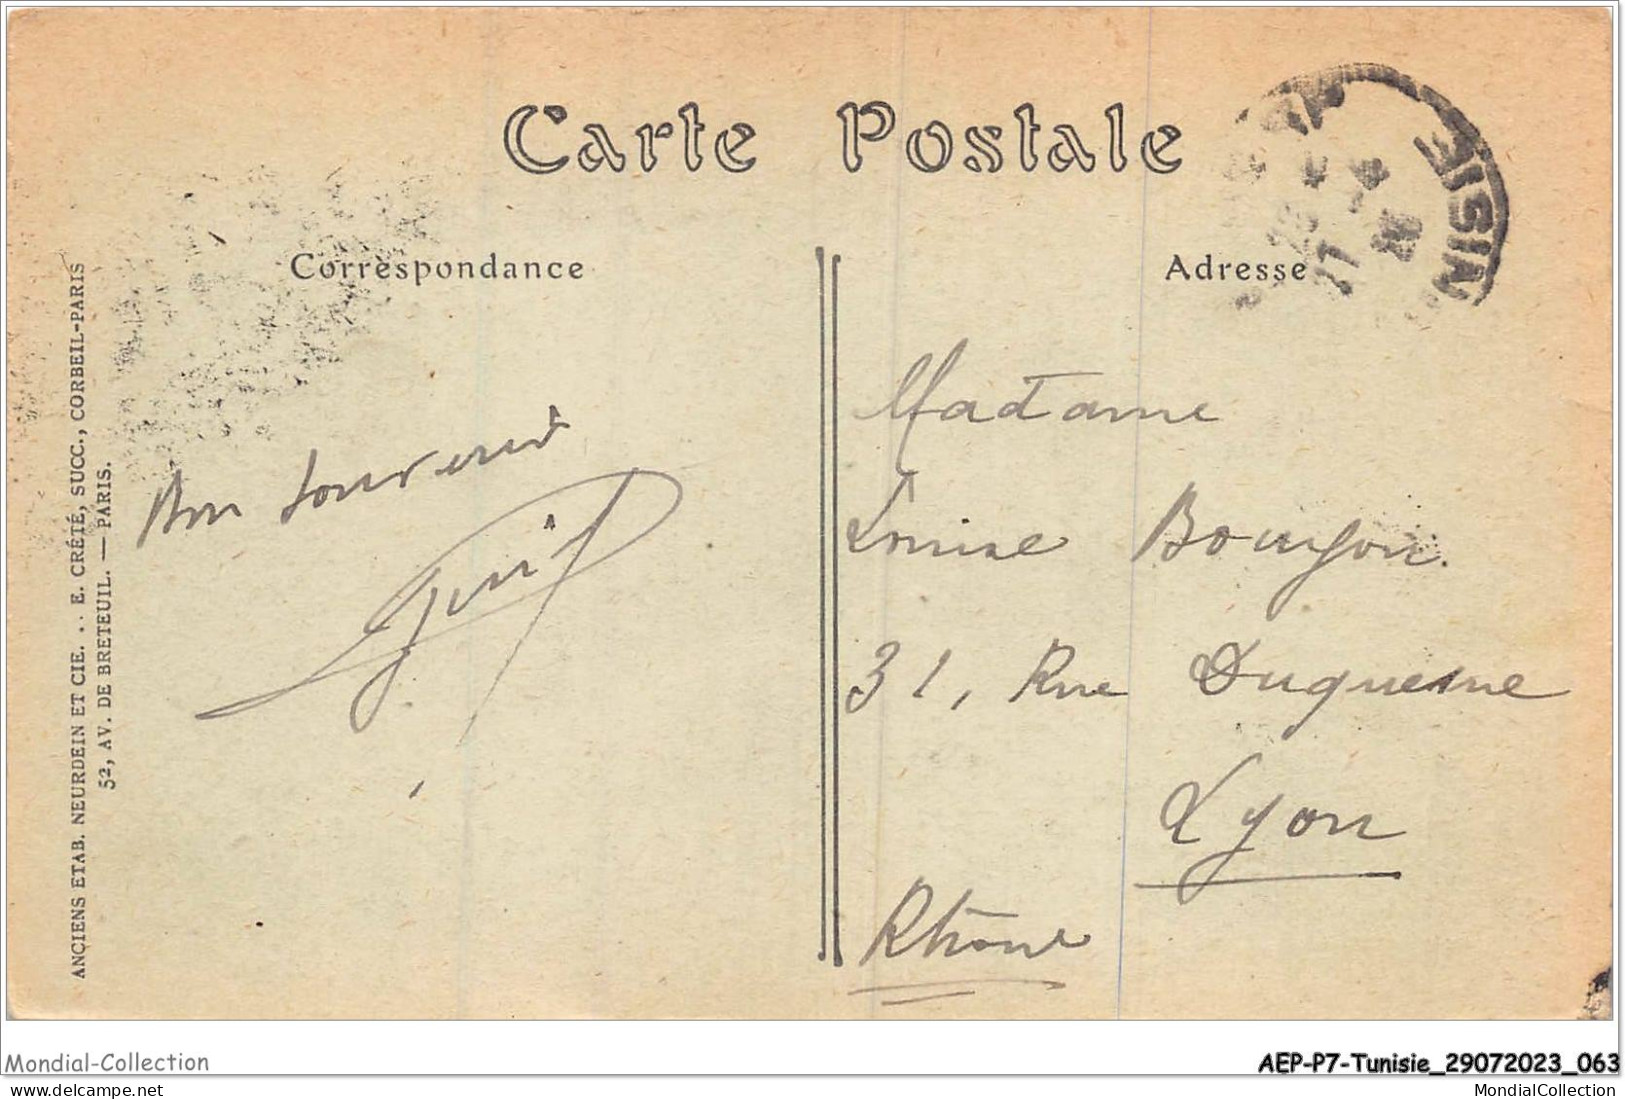 Carte Postale
Correspondance
Adresse
NISIE
ANCIENS ETAB. NEURDEIN ET CIE. .. E. CRÉTÉ, SUCC., CORBEIL-PARIS
52, AV. DE BRETEUIL. — PARIS.
Bon souvenir
Madame
Louise
31, Rue Duquesne
Lyon
Rhône
Mondial-Collection
AEP-P7-Tunisie_29072023_063
delcampe.net
MondialCollection